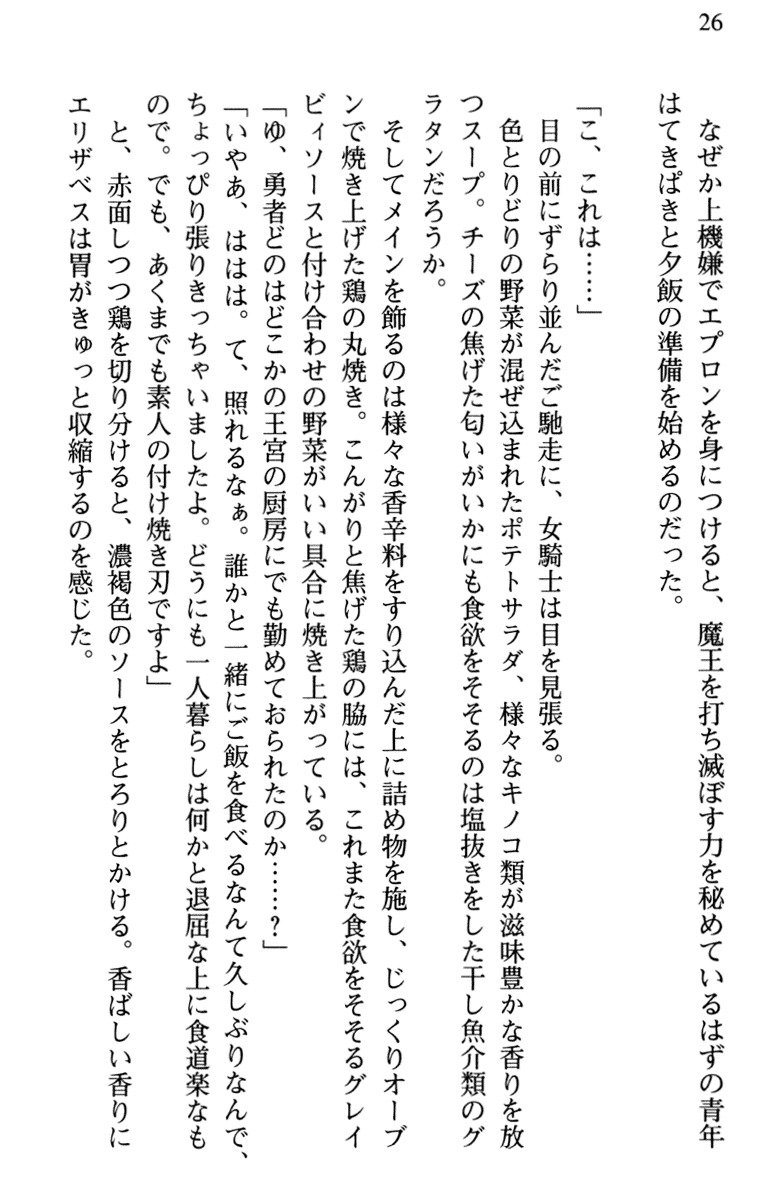 26
なぜか上機嫌でエプロンを身につけると、魔王を打ち滅ぼす力を秘めているはずの青年
はてきぱきと夕飯の準備を始めるのだった。
「こ、これは……」
目の前にずらり並んだご馳走に、女騎士は目を見張る。
色とりどりの野菜が混ぜ込まれたポテトサラダ、様々なキノコ類が滋味豊かな香りを放
つスープ。チーズの焦げた匂いがいかにも食欲をそそるのは塩抜きをした干し魚介類のグ
ラタンだろうか。
そしてメインを飾るのは様々な香辛料をすり込んだ上に詰め物を施し、じっくりオーブ
ンで焼き上げた鶏の丸焼き。こんがりと焦げた鶏の脇には、これまた食欲をそそるグレイ
ビィソースと付け合わせの野菜がいい具合に焼き上がっている。
「ゆ、勇者どのはどこかの王宮の厨房にでも勤めておられたのか……?」
「いやあ、ははは。て、照れるなぁ。誰かと一緒にご飯を食べるなんて久しぶりなんで、
ちょっぴり張りきっちゃいましたよ。どうにも一人暮らしは何かと退屈な上に食道楽なも
ので。でも、あくまでも素人の付け焼き刃ですよ」
と、赤面しつつ鶏を切り分けると、濃褐色のソースをとろりとかける。香ばしい香りに
エリザベスは胃がきゅっと収縮するのを感じた。